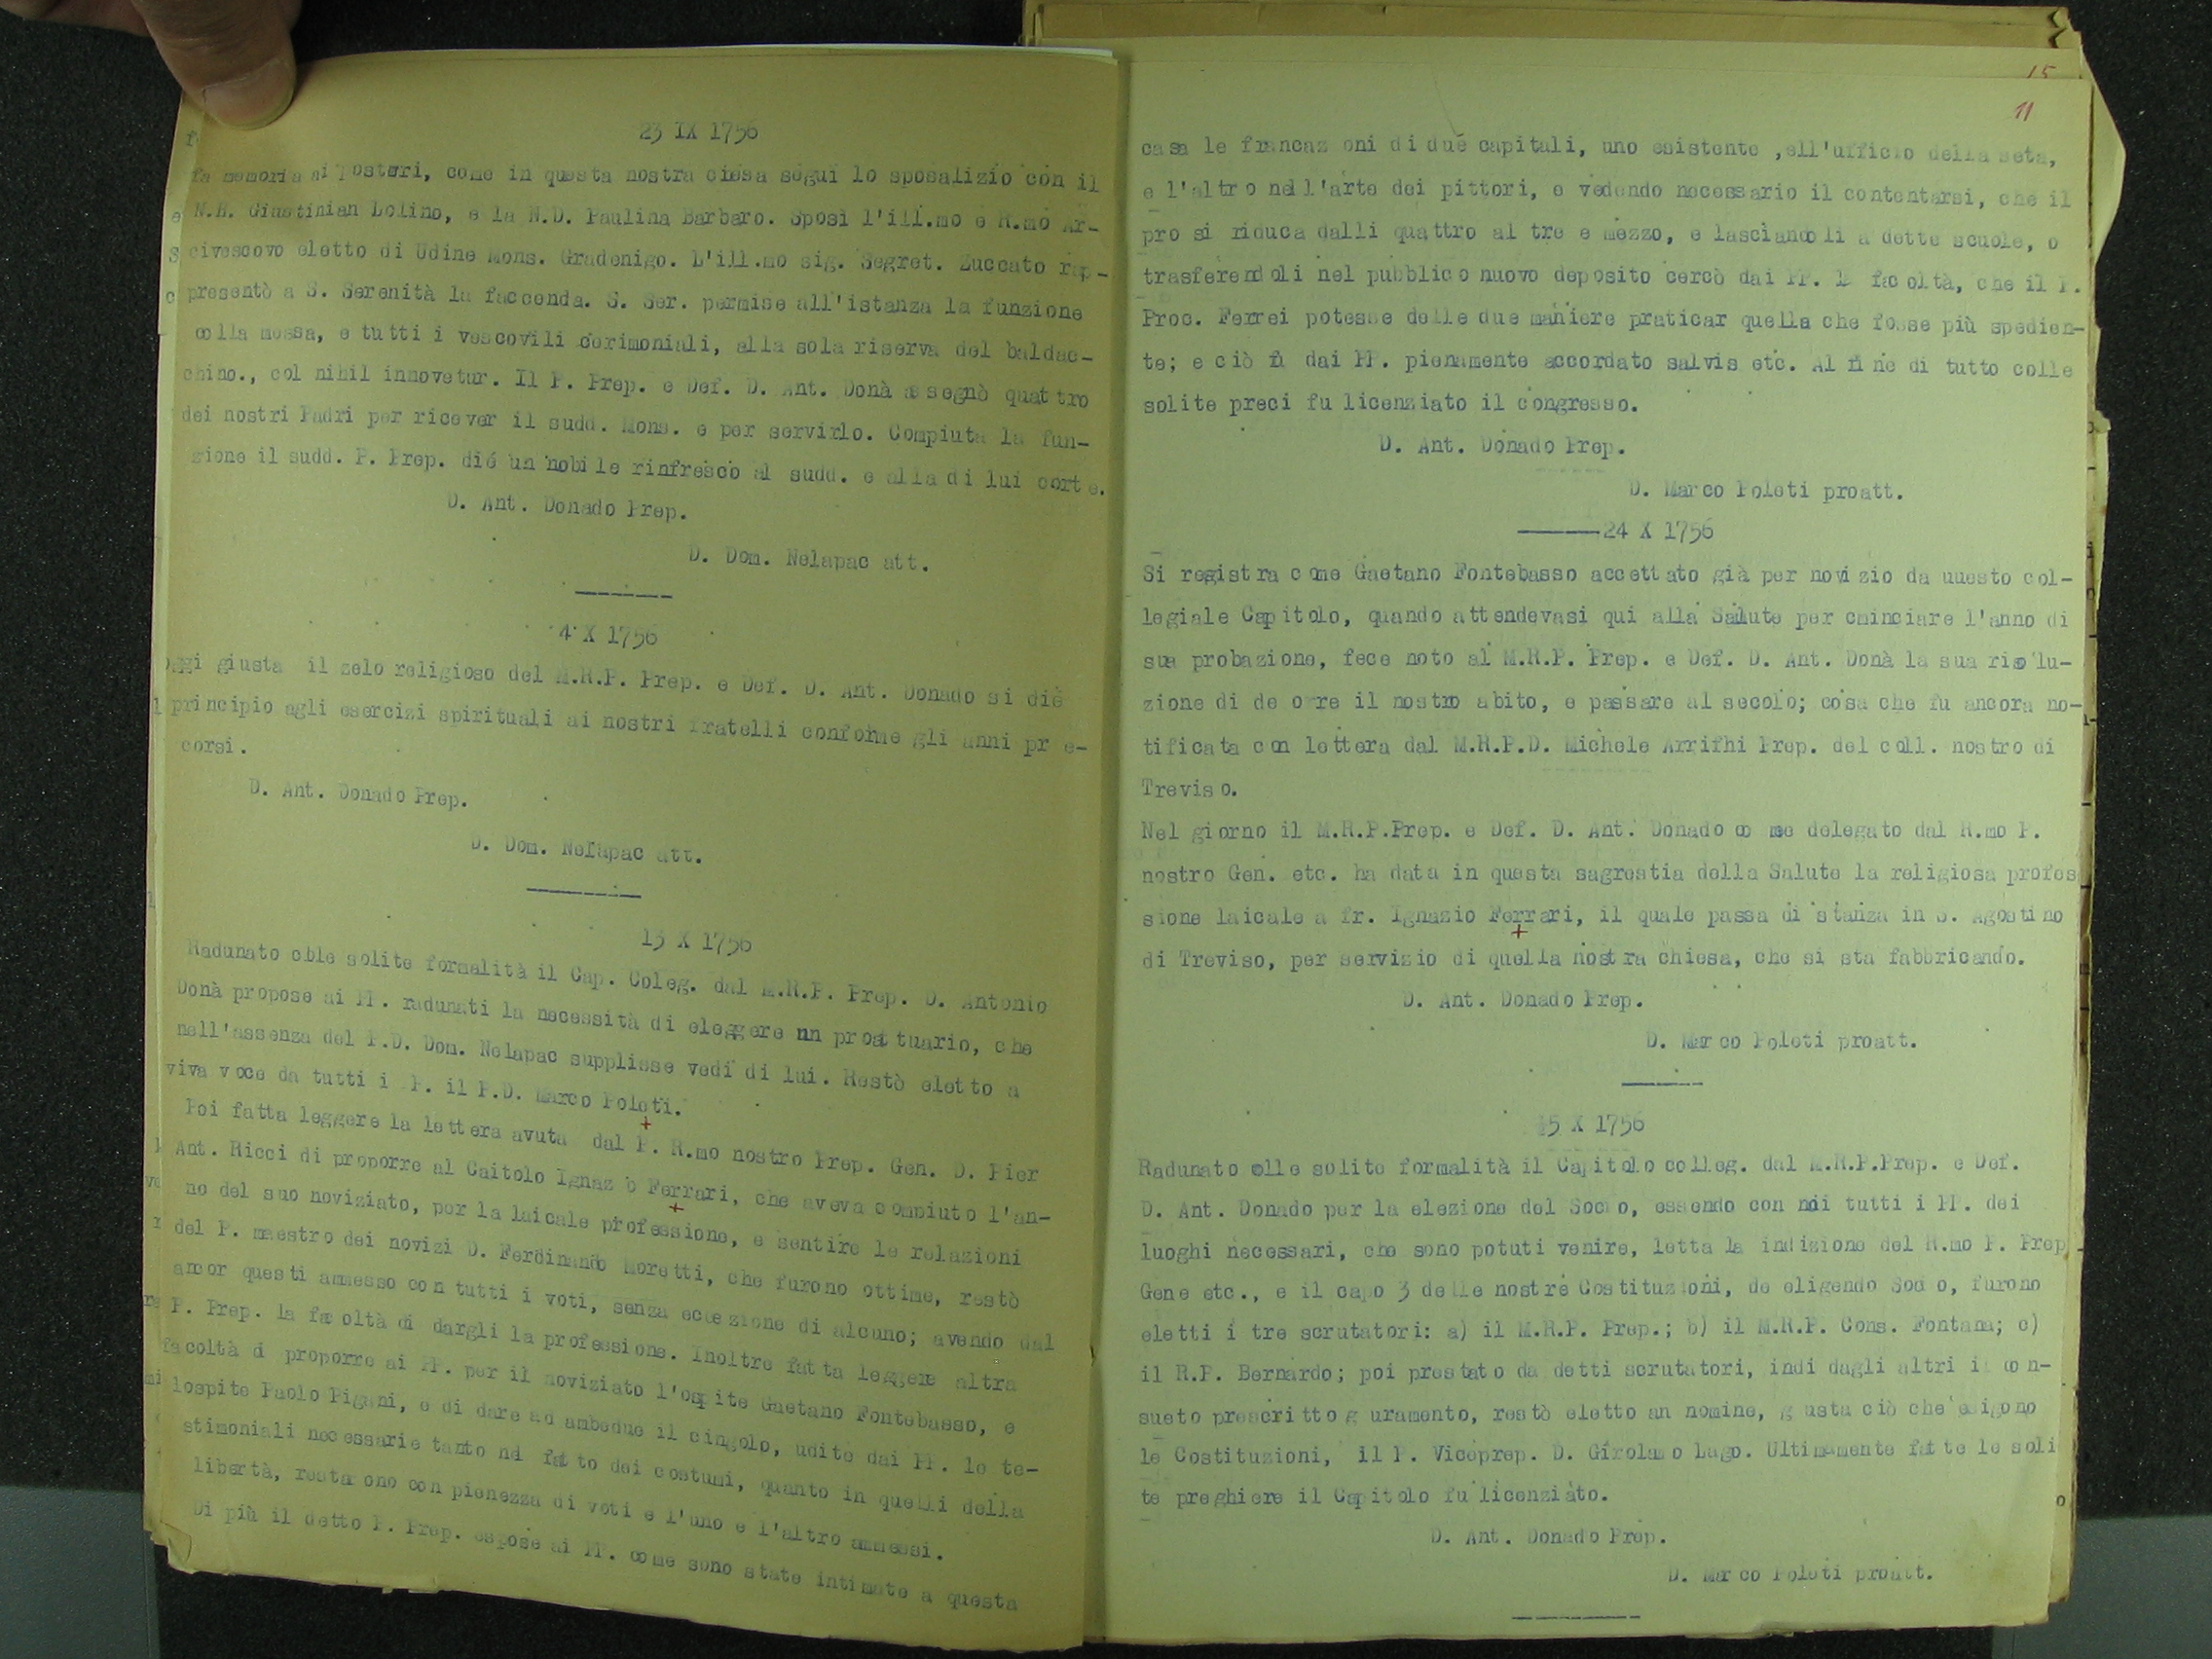 23 IX 1756
fa memoria ai posteri, come in questa nostra ciesa seguì lo sposalizio con il
N.H. Giustinian Lolino, e la N.D. Paulina Barbaro. Sposì l'ill.mo e R.mo Ar-
civescovo eletto di Udine Mons. Gradenigo. L'ill.mo sig. Segret. Zuccato rap-
presentò a S. Serenità la faccenda. S. Ser. permise all'istanza la funzione
colla messa, e tutti i vescovili cerimoniali, alla sola riserva del baldac-
chino., col nihil innovetur. Il P. Prep. e Def. D. Ant. Donà assegnò quattro
dei nostri Padri per ricever il sudd. Mons. e per servirlo. Compiuta la fun-
zione il sudd. P. Prep. dié un nobile rinfresco al sudd. e alla di lui corte.
D. Ant. Donado Prep.
D. Dom. Nelapac att.
4 X 1756
Oggi giusta il zelo religioso del M.R.P. Prep. e Def. D. Ant. Donado si diè
principio agli esercizi spirituali ai nostri fratelli conforme gli anni pre-
corsi.
D. Ant. Donado Prep.
D. Dom. Nelapac att.
13 X 1756
Radunato colle solite formalità il Cap. Coleg. dal M.R.P. Prep. D. Antonio
Donà propose ai PP. radunati la necessità di eleggere un proattuario, che
nell'assenza del P.D. Dom. Nelapac supplisse vedi di lui. Restò eletto a
viva voce da tutti i PP. il P.D. Marco Poleti.
Poi fatta leggere la lettera avuta dal P. R.mo nostro Prep. Gen. D. Pier
Ant. Ricci di proporre al Caitolo Ignazio Ferrari, che aveva compiuto l'an-
no del suo noviziato, per la laicale professione, e sentire le relazioni
del P. maestro dei novizi D. Ferdinando Moretti, che furono ottime, restò
ancor questi ammesso con tutti i voti, senza eccezione di alcuno; avendo dal
P. Prep. la facoltà di dargli la professione. Inoltre fatta leggere altra
facoltà di proporre ai PP. per il noviziato l'ospite Gaetano Fontebasso, e
lospite Paolo Pigani, e di dare ad ambedue il cingolo, udite dai PP. le te-
stimoniali necessarie tanto nel fatto dei costumi, quanto in quelli della
libertà, restarono con pienezza di voti e l'uno e l'altro ammessi.
Di più il detto P. Prep. espose ai PP. come sono state intimate a questa
15
11
casa le francazioni di due capitali, uno esistente nell'ufficio della seta,
e l'altro nell'arte dei pittori, e vedendo necessario il contentarsi, che il
pro si riduca dalli quattro al tre e mezzo, e lasciandoli a dette scuole, o
trasferendoli nel pubblico nuovo deposito cercò dai PP. la facoltà, che il P.
Proc. Ferrei potesse delle due maniere praticar quella che fosse più spedien-
te; e ciò fu dai PP. pienamente accordato salvis etc. Al fine di tutto colle
solite preci fu licenziato il congresso.
D. Ant. Donado Prep.
D. Marco Poleti proatt.
24 X 1756
Si registra come Gaetano Fontebasso accettato già per novizio da uuesto col-
legiale Capitolo, quando attendevasi qui alla Salute per cminciare l'anno di
sua probazione, fece noto al M.R.P. Prep. e Def. D. Ant. Donà la sua risolu-
zione di deporre il nostro abito, e passare al secolo; cosa che fu ancora no-
tificata con lettera dal M.R.P.D. Michele Arrifhi Prep. del coll. nostro di
Treviso.
Nel giorno il M.R.P.Prep. e Def. D. Ant. Donado come delegato dal R.mo P.
nostro Gen. etc. ha data in questa sagrestia della Salute la religiosa profes
sione laicale a fr. Ignazio Ferrari, il quale passa di stanza in S. Agostino
di Treviso, per servizio di quella nostra chiesa, che si sta fabbricando.
D. Ant. Donado Prep.
D. Marco Poleti proatt.
25 X 1756
Radunato colle solite formalità il Capitolo colleg. dal M.R.P.Prep. e Def.
D. Ant. Donado per la elezione del Socio, essendo con noi tutti i PP. dei
luoghi necessari, che sono potuti venire, letta la indizione del R.mo P. Prep
Gene etc., e il capo 3 delle nostre Costituzioni, de eligendo Socio, furono
eletti i tre scrutatori: a) il M.R.P. Prep.; b) il M.R.P. Cons. Fontana; c)
il R.P. Bernardo; poi prestato da detti scrutatori, indi dagli altri il con-
sueto prescritto giuramento, restò eletto an nomine, giusta ciò che esigono
le Costituzioni, il P. Viceprep. D. Girolamo Lago. Ultimamente fatte le soli
te preghiere il Capitolo fu licenziato.
D. Ant. Donado Prep.
D. Marco Poleti proatt.